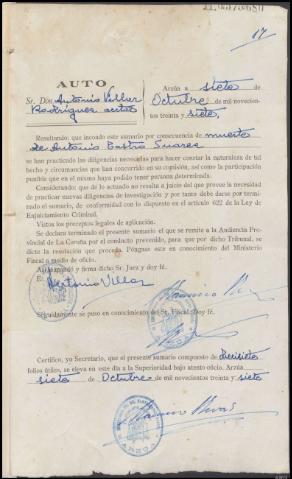 17
AUTO
Sr. Don Antonio Villar
Rodríguez acctal
Arzúa a siete de
Octubre de mil novecien-
tos treinta y siete,
Resultando: que incoado este sumario por consecuencia de muerte
de Antonio Castro Suarez
se han practicado las diligencias necesarias para hacer constar la naturaleza de tal
hecho y circunstancias que han concurrido en su comisión, así como la participación
punible que en el mismo haya podido tener persona determinada.
Considerando: que de lo actuado no resulta a juicio del que provee la necesidad
de practicar nuevas diligencias de investigación y por tanto debe darse por termi-
nado el sumario, de conformidad con lo dispuesto en el artículo 622 de la Ley de
Enjuiciamiento Criminal.
Vistos los preceptos legales de aplicación.
Se declara terminado el presente sumario el que se remite a la Audiencia Pro-
vincial de La Coruña por el conducto prevenido, para que por dicho Tribunal, se
dicte la resolución que proceda. Póngase este en conocimiento del Ministerio
Fiscal a medio de oficio.
Así lo mandó y firma dicho Sr. Juez y doy fé.
Antonio Villar
Seguidamente se puso en conocimiento del Sr. Fiscal. Doy fé.
Certifico, yo Secretario, que el presente sumario compuesto de diecisiete
folios útiles, se eleva en este día a la Superioridad bajo atento oficio. Arzúa
siete de Octubre de mil novecientos treinta y siete